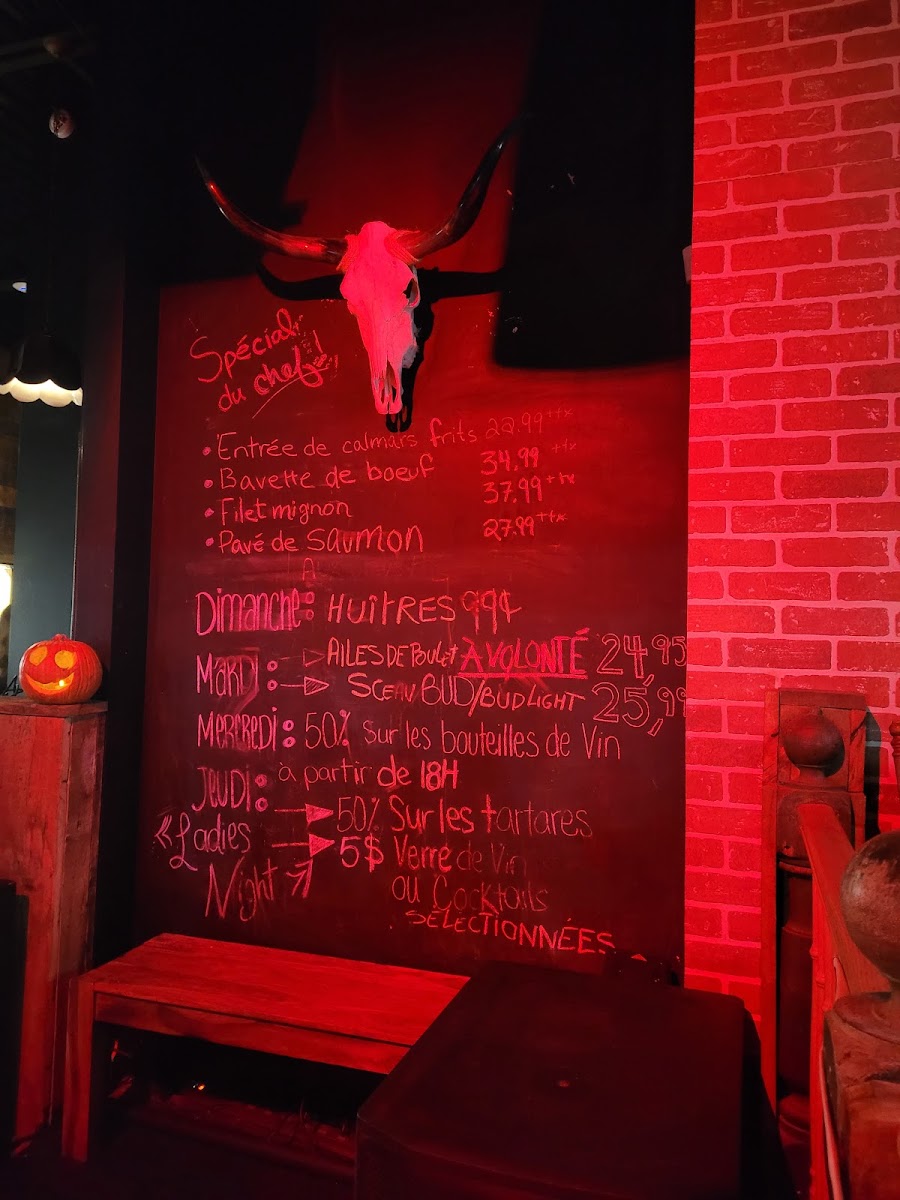 Spécial
du chef!
• Entrée de calmars frits 22.99 +tx
• Bavette de boeuf 34.99 +tx
• Filet mignon 37.99 +tx
• Pavé de saumon 27.99 +tx
Dimanche: HUÎTRES 99¢
MARDI: AILES DE POULET À VOLONTÉ 24,95
SCEAU BUD/BUDLIGHT 25,99
MERCREDI: 50% Sur les bouteilles de Vin
JEUDI: à partir de 18H
50% Sur les tartares
"Ladies Night" 5$ Verre de Vin
ou Cocktails
SÉLECTIONNÉES